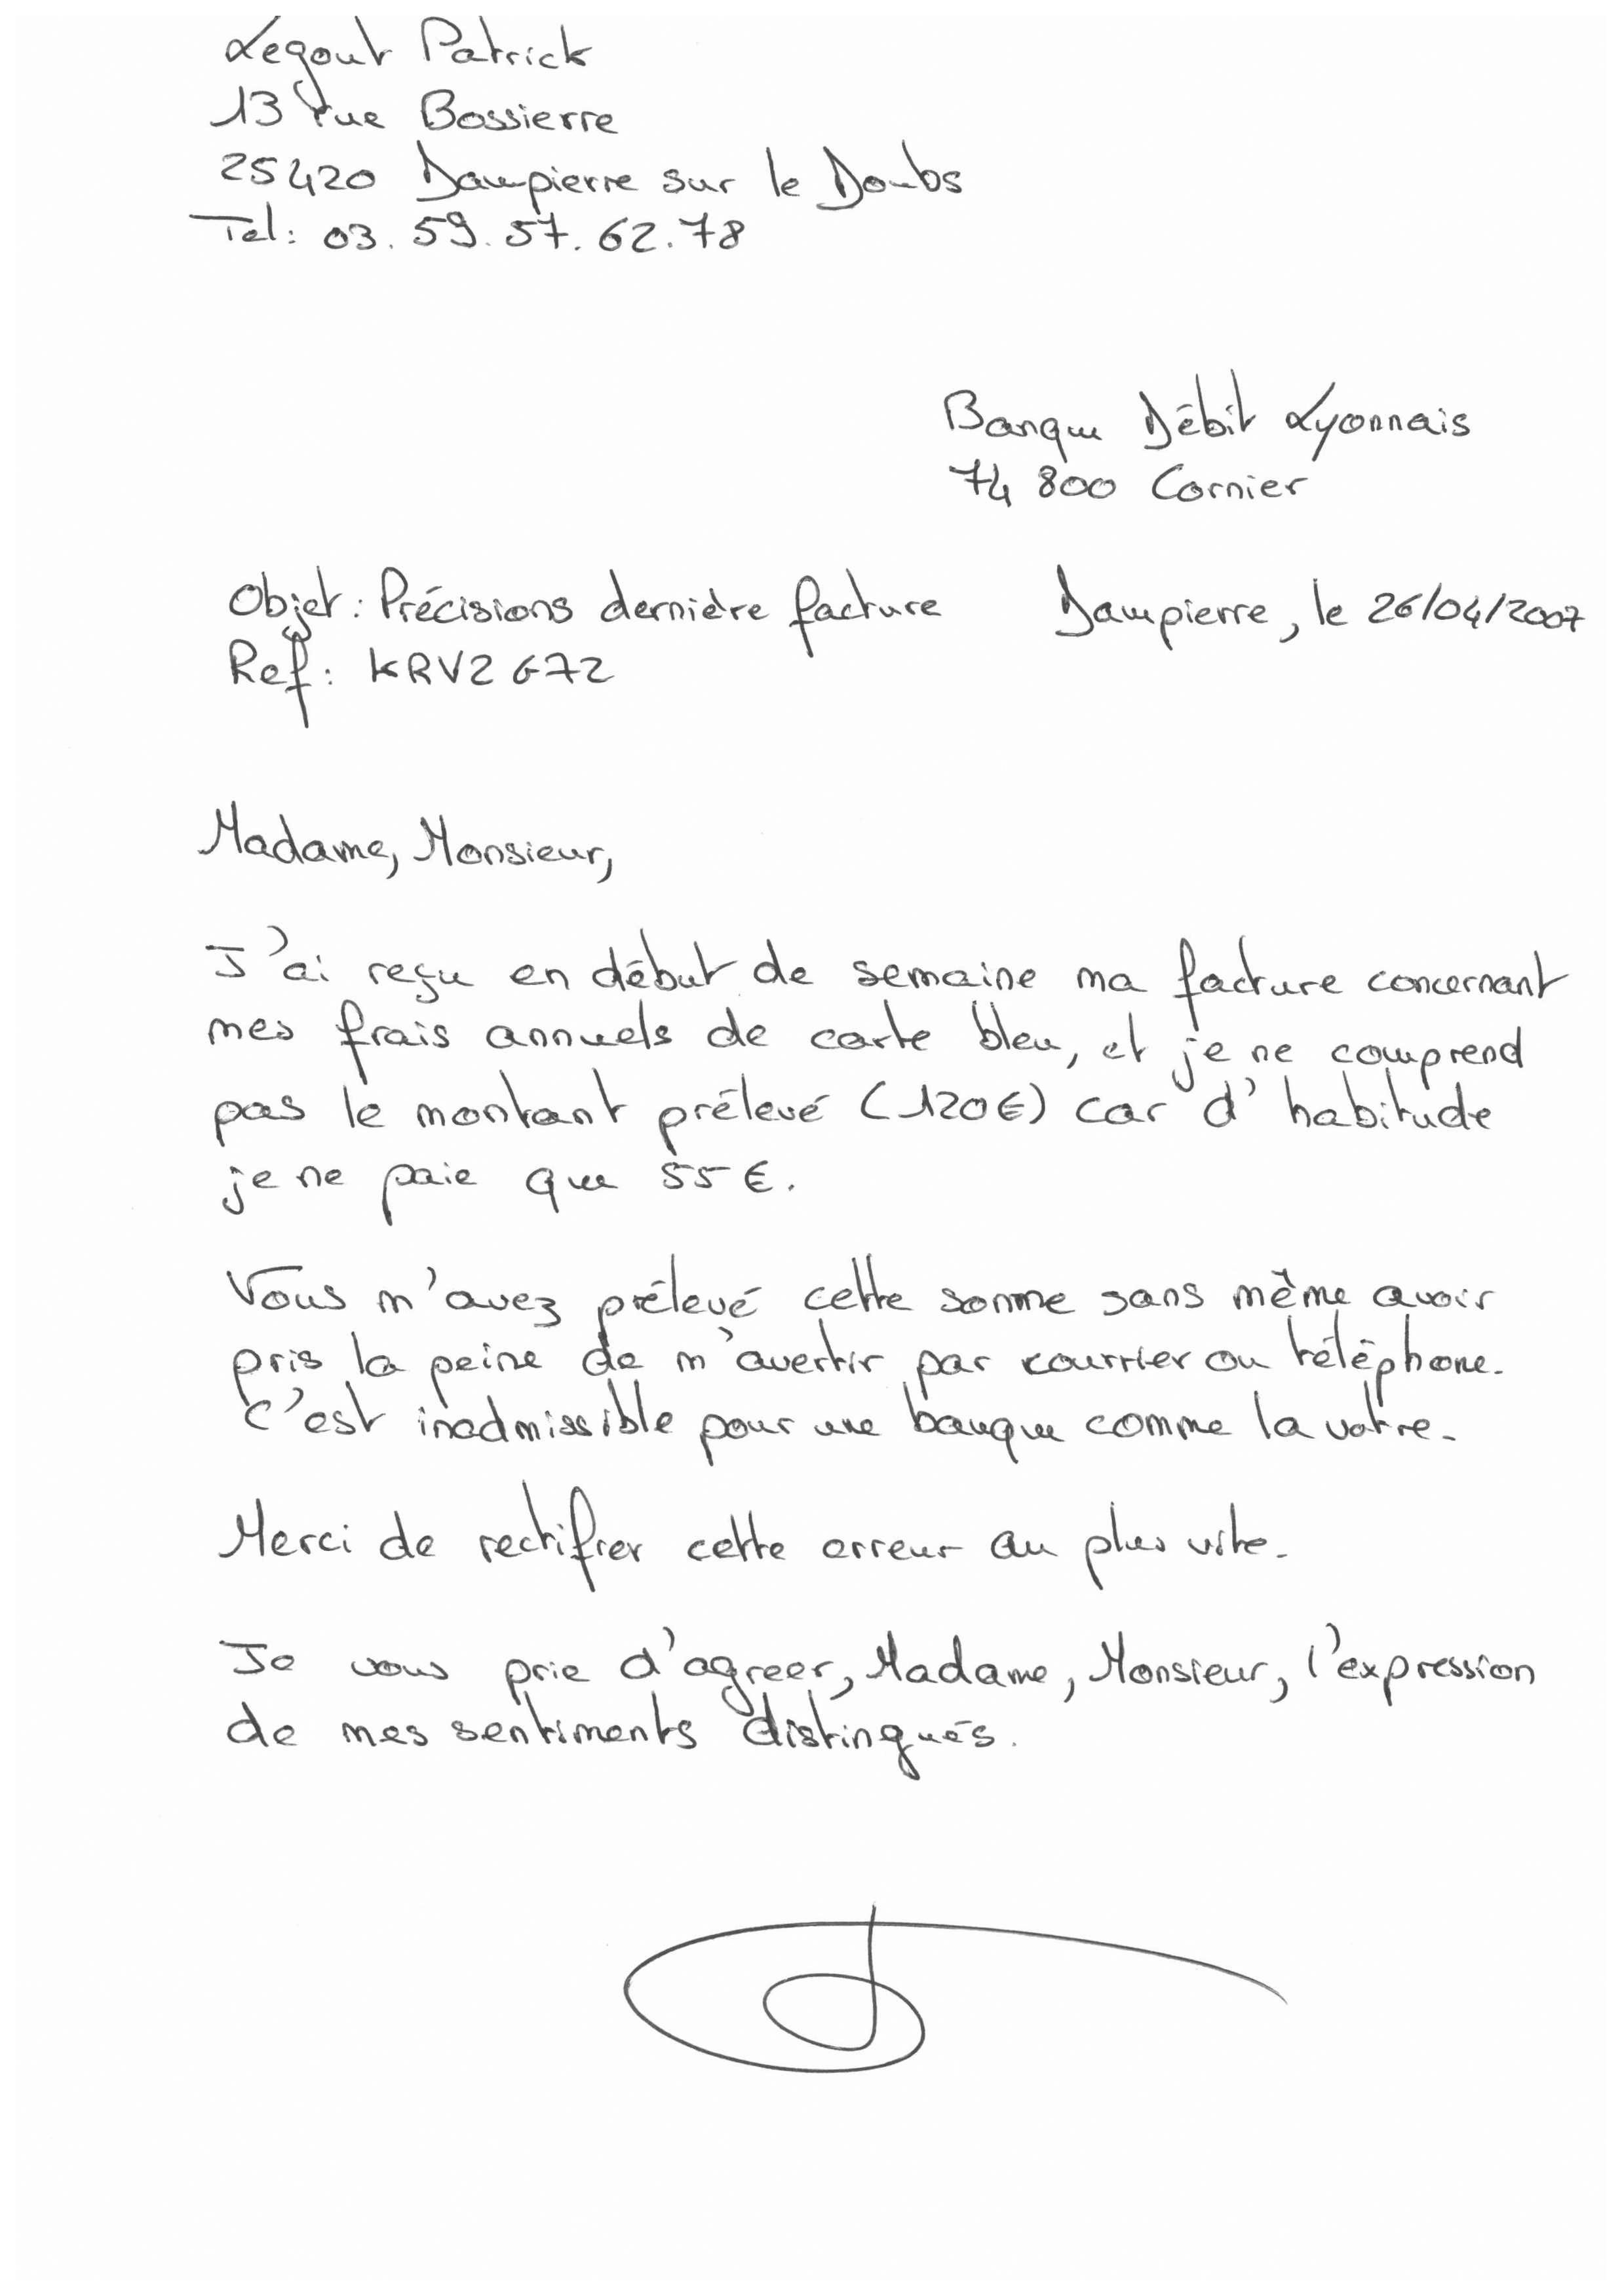 Legout Patrick
13 rue Bossierre
25420 Dampierre sur le Doubs
Tel: 03.59.57.62.78
Banque Débit Lyonnais
74 800 Cornier
Objet: Précisions dernière facture Dampierre, le 26/04/2007
Ref: KRV2672
Madame, Monsieur,
J'ai reçu en début de semaine ma facture concernant
mes frais annuels de carte bleu, et je ne comprend
pas le montant prélevé (120€) car d'habitude
je ne paie que 55€.
Vous m'avez prélevé cette somme sans même avoir
pris la peine de m'avertir par courrier ou téléphone.
C'est inadmissible pour une banque comme la votre.
Merci de rectifier cette erreur au plus vite.
Je vous prie d'agreer, Madame, Monsieur, l'expression
de mes sentiments distingués.